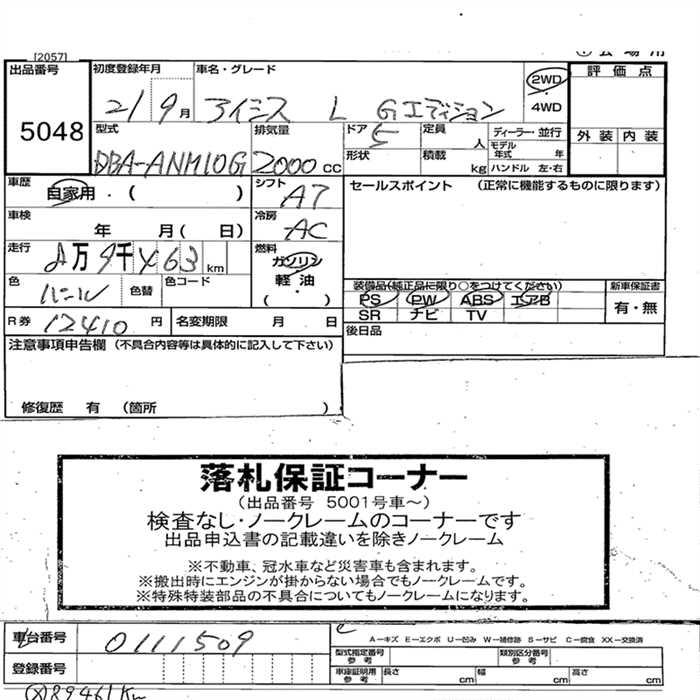 [2057]
出品番号
5048
初度登録年月
21 9月
車名・グレード
アイシス L Gエディション
2WD
4WD
評価点
外装 内装
型式
DBA-ANM10G
排気量
2000cc
ドア 5
形状
定員 人
積載 kg
ディーラー・並行
モデル年式 年
ハンドル 左・右
車歴
自家用・( )
シフト
A7
車検
年 月( 日)
冷房
AC
走行
万9千463km
燃料
ガソリン
軽油
(・)
色
パール
色替
色コード
R券 12410円
名変期限 月 日
セールスポイント (正常に機能するものに限ります)
装備品(純正品に限り○をつけてください)
PS PW ABS エアB
SR ナビ TV
新車保証書
有・無
後日品
注意事項申告欄 (不具合内容等は具体的に記入して下さい)
修復歴 有 (箇所 )
落札保証コーナー
(出品番号 5001号車～)
検査なし・ノークレームのコーナーです
出品申込書の記載違いを除きノークレーム
※不動車、冠水車など災害車も含まれます。
※搬出時にエンジンが掛からない場合でもノークレームです。
※特殊特装部品の不具合についてもノークレームになります。
車台番号 0111509
登録番号
A-キズ E-エクボ U-凹み W-補修跡 S-サビ C-腐食 XX-交換済
型式指定番号 参考
類別区分番号 参考
車庫証明用 参考
長さ cm 幅 cm 高さ cm
89461Km